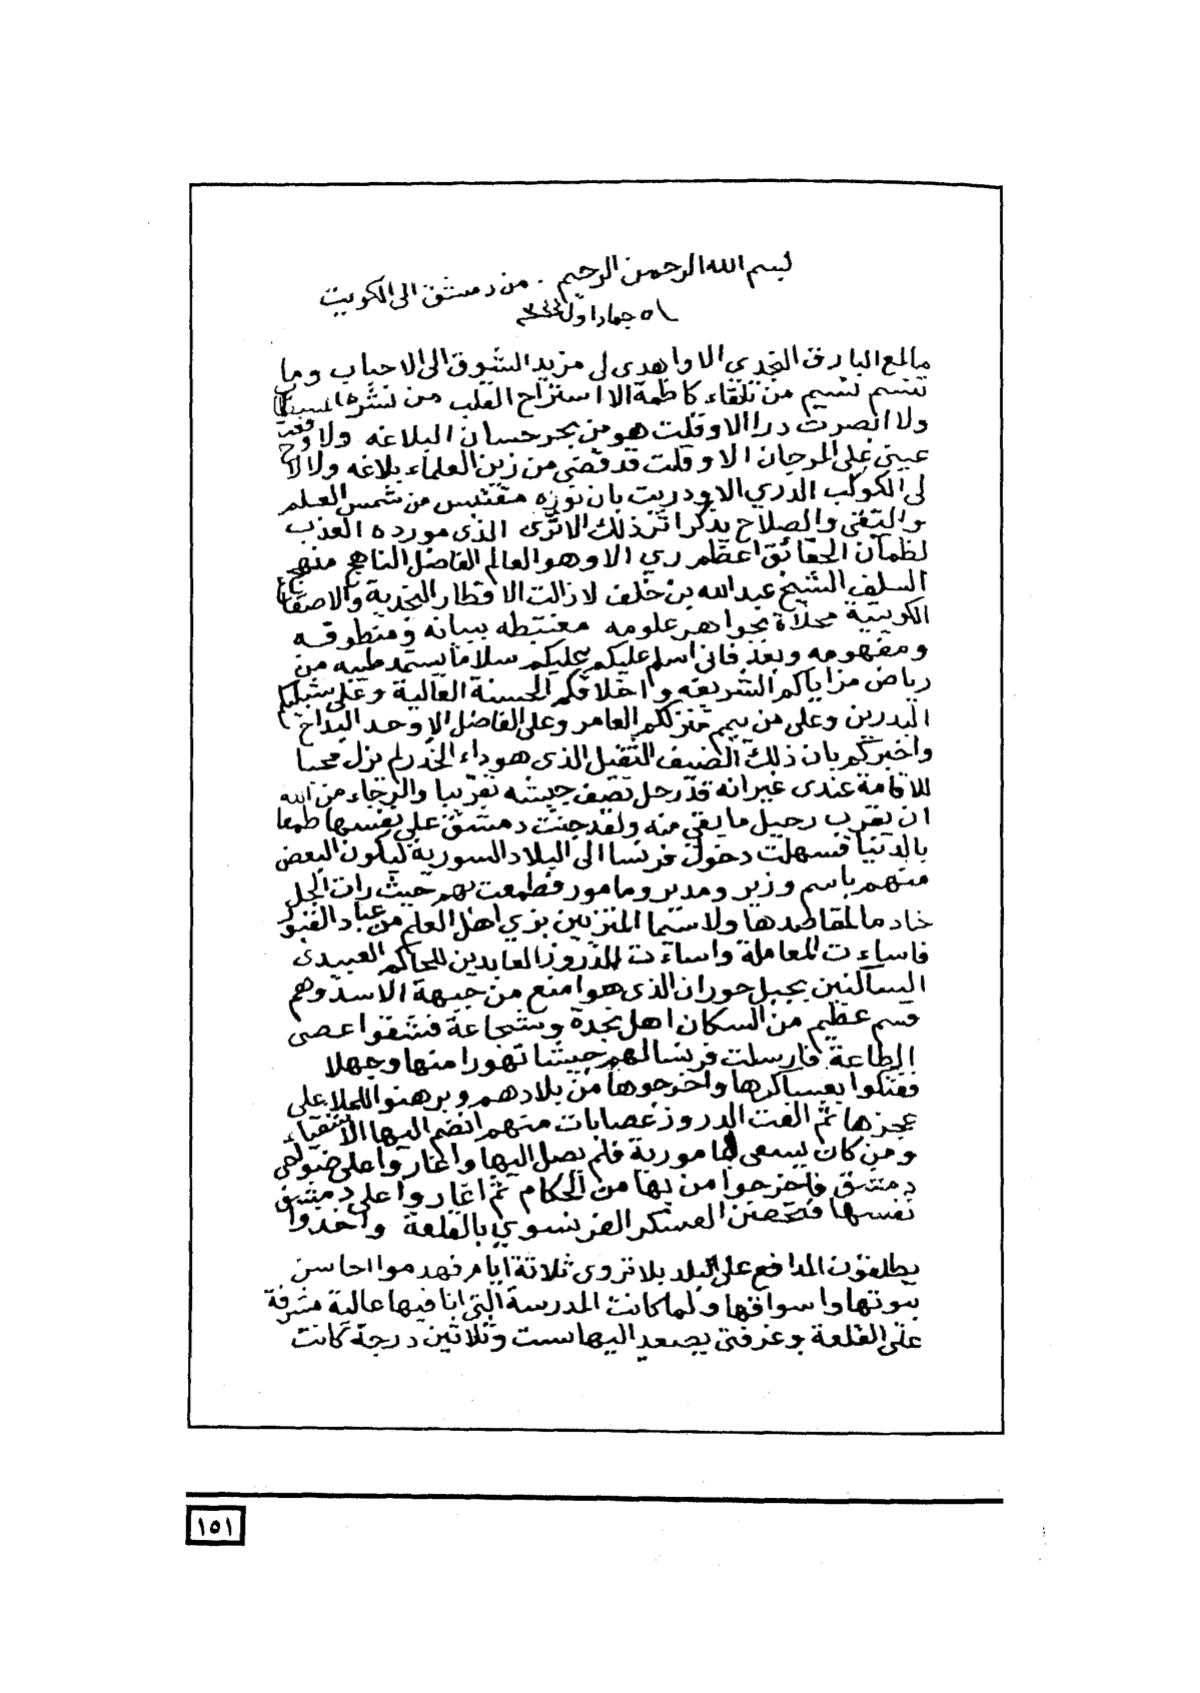 بسم الله الرحمن الرحيم . من دمشق الى الكويت
١٥ جماد اول
ما لمع البارق النجدي الا واهدى لي مزيد الشوق الى الاحباب وما
تنسم نسيم من تلقاء كاظمة الا استراح القلب من نشرها
ولا ابصرت درا الا وقلت هو من بحر حسان البلاغه ولا وقعت
عيني على المرجان الا وقلت قد قضى من زين العلماء بلاغه ولا لاح
لي الكوكب الدري الا ودريت بان نوره مقتبس من شمس العلم
والتقى والصلاح بذكراترذلك الاثرى الذى مورده العذب
لظمآن الحقائق اعظم ري الا وهو العالم الفاضل الناهج منهج
السلف الشيخ عبد الله بن خلف لا زالت الاقطار النجدية والاصقاع
الكويتية محلاة بجواهر علومه مغتبطه ببيانه ومنطوقه
ومفهومه وبعد فاني اسلم عليكم عليكم سلاما يستمد طيبه من
رياض مزاياكم الشريفه واخلاقكم الحسنة العالية وعلى شبليكم
البدرين وعلى من بيم منزلكم العامر وعلى الفاضل الاوحد البداح
واخبركم بان ذلك الضيف الثقيل الذى هو داء الخدر لم يزل محبا
للاقامة عندى غير انه قد رحل نصف جيشه تقريبا والرجاء من الله
ان يقرب رحيل ما بقي منه ولقد جنت دمشق على نفسها طمعا
بالدنيا فسهلت دخول فرنسا الى البلاد السورية ليكون البعض
منهم باسم وزير ومدير ومامور فطمعت بهم حيث رات الجل
خادما لمقاصدها ولا سيما المتزيين بزي اهل العلم من عباد القبور
فاساءت المعاملة واساءت للدروز العابدين للحاكم العبيدى
الساكنين بجبل حوران الذى هو امنع من جبهة الاسد وهم
قسم عظيم من السكان اهل نجدة وشجاعة فشقوا عصى
الطاعة فارسلت فرنسا لهم جيشا تهورا منها وجهلا
ففتكوا بعساكرها واخرجوها من بلادهم وبرهنوا للملا على
عجزها ثم الفت الدروز عصابات منهم انضم اليها الاشقياء
ومن كان يسعى لمامورية فلم يصل اليها واغاروا على ضواحى
دمشق فاخرجوا من بها من الحكام ثم اغاروا على دمشق
نفسها فتحصن العسكر الفرنسوي بالقلعة واخذوا
يطلقون المدافع على البلد بلا تروى ثلاثة ايام فهدموا احاسن
بيوتها واسواقها ولما كانت المدرسة التى انا فيها عالية مشرفة
على القلعة وغرفتى يصعد اليها ست وثلاثين درجة كانت
١٥١